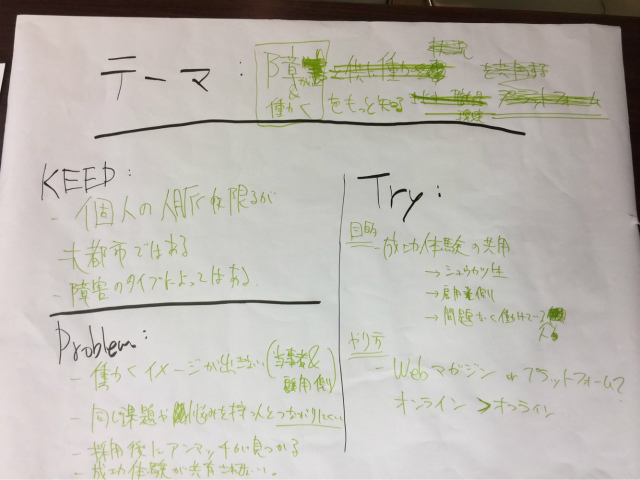 テーマ：
障がい
&
働く
をもっと知る
KEEP：
- 個人の人脈に限るが
大都市ではある
- 障害のタイプによってはある
Problem：
- 働くイメージが出ない（当事者&
雇用側）
- 同じ課題や悩みを持つ人とつながりにくい
- 採用後にアンマッチが見つかる
- 成功体験が共有されない。
Try：
目的
- 成功体験の共用
→ シュウカツ生
→ 雇用側
→ 問題なく働けている
人
やり方
- Webマガジン or プラットフォーム？
オンライン > オフライン